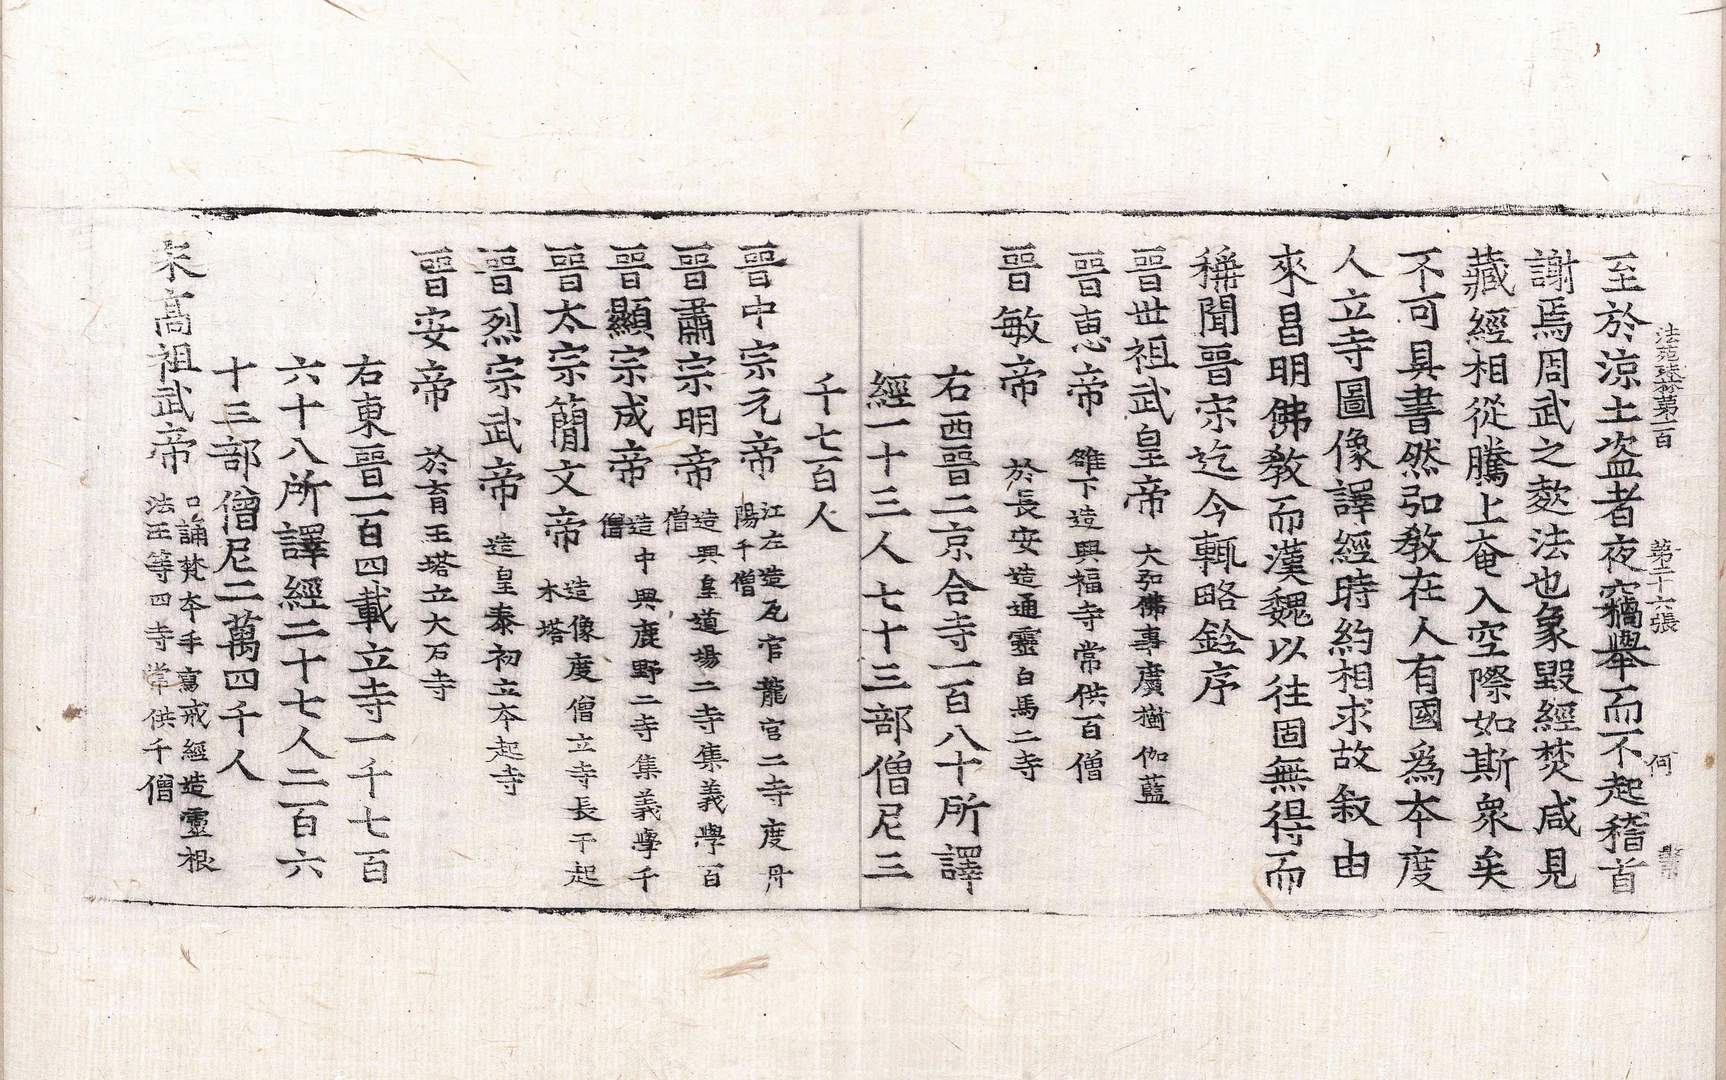 法苑珠林第一百　第二十六張　何
至於涼土盜者夜竊舉而不起稽首
謝焉周武之滅法也象毀經焚咸見
藏經相從騰上奄入空際如斯衆矣
不可具書然弘敎在人有國爲本度
人立寺圖像譯經時約相求故叙由
來昌明佛敎而漢魏以往固無得而
稱聞晉宋迄今輒略銓序
晉世祖武皇帝 大弘佛事廣樹伽藍
晉惠帝 雒下造興福寺常供百僧
晉敏帝 於長安造通靈白馬二寺
右西晉二京合寺一百八十所譯
經一十三人七十三部僧尼三
千七百人
晉中宗元帝 江左造瓦官龍宮二寺度丹
陽千僧
晉肅宗明帝 造興皇道場二寺集義學百
僧
晉顯宗成帝 造中興鹿野二寺集義學千
僧
晉太宗簡文帝 造像度僧立寺長干起
木塔
晉烈宗武帝 造皇泰初立夲起寺
晉安帝 於育王塔立大石寺
右東晉一百四載立寺一千七百
六十八所譯經二十七人二百六
十三部僧尼二萬四千人
宋高祖武帝 口誦梵夲手寫戒經造靈根
法王等四寺常供千僧